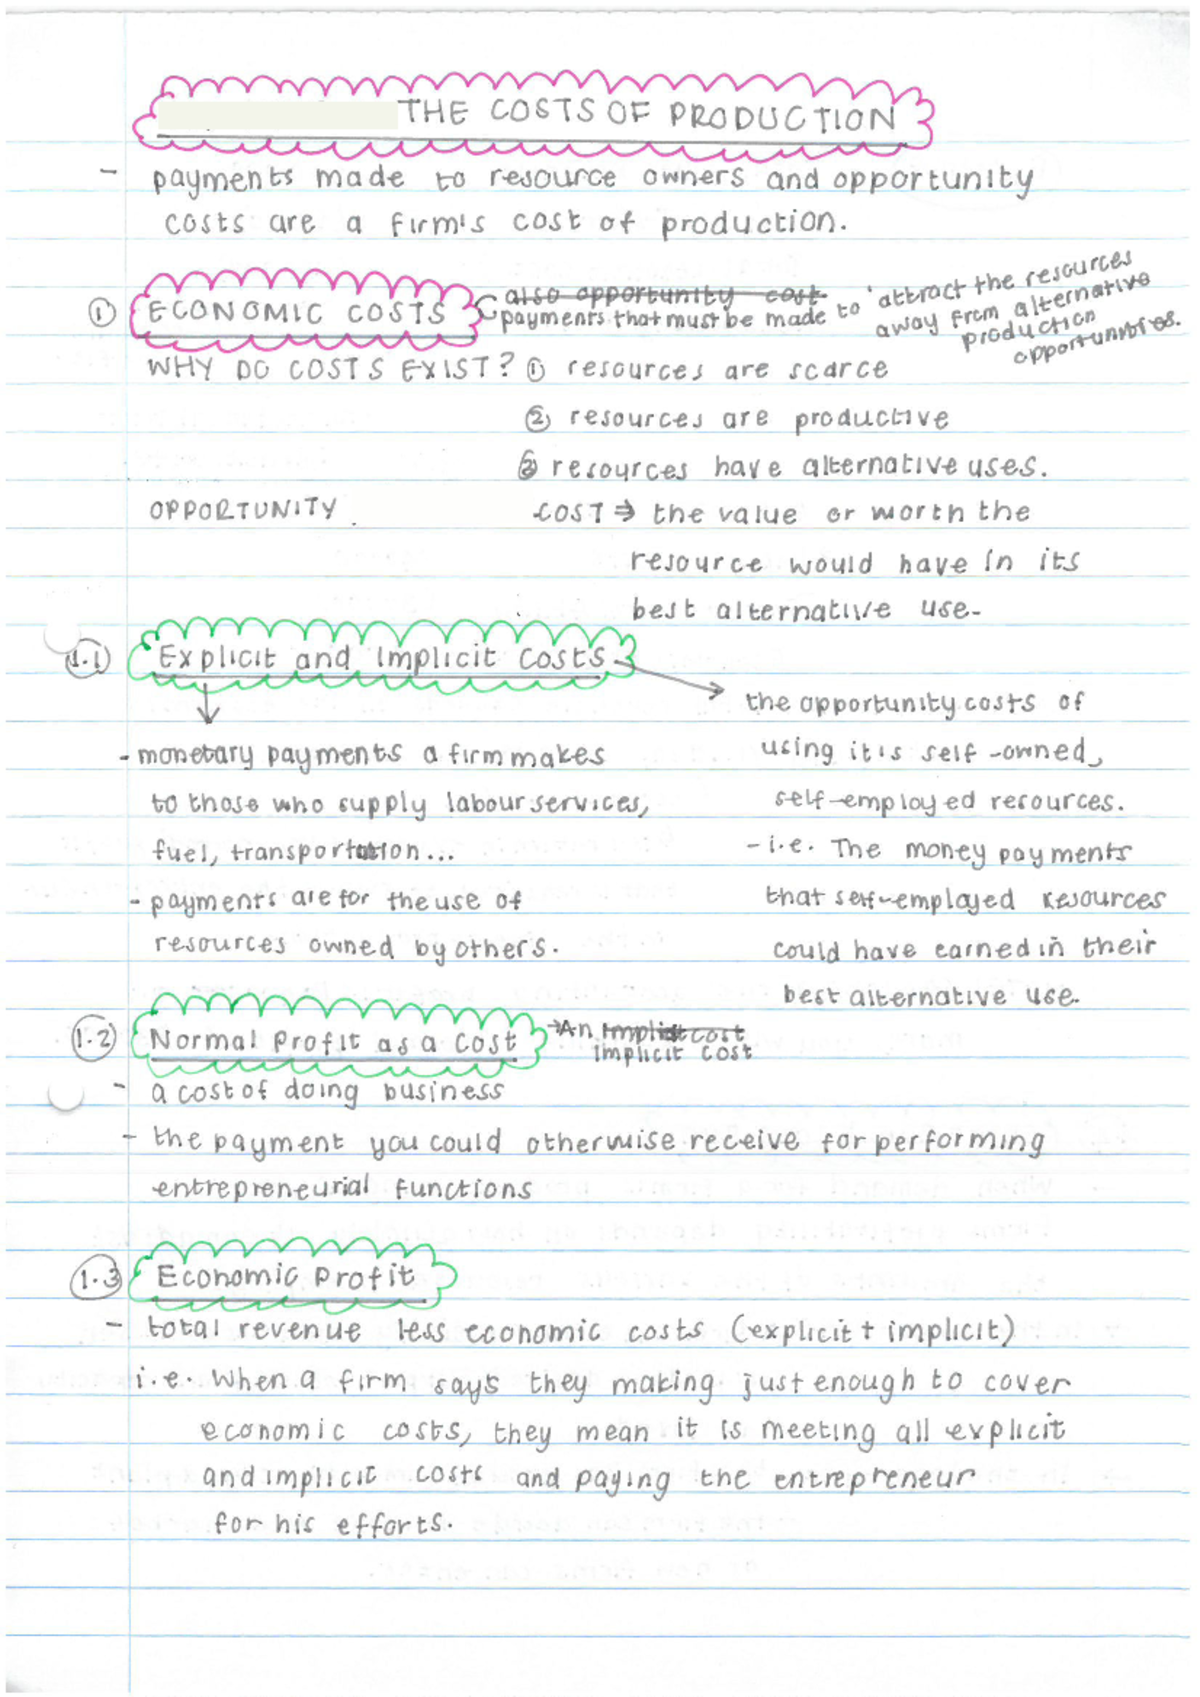 THE COSTS OF PRODUCTION
- payments made to resource owners and opportunity
costs are a firm's cost of production.
① ECONOMIC COSTS
also opportunity cost
payments that must be made to attract the resources
away from alternative
production
opportunities.
WHY DO COSTS EXIST? ① resources are scarce
② resources are productive
③ resources have alternative uses.
OPPORTUNITY COST ⇒ the value or worth the
resource would have in its
best alternative use-
1.1 Explicit and Implicit Costs
- monetary payments a firm makes
to those who supply labour services,
fuel, transportation...
- payments are for the use of
resources owned by others.
the opportunity costs of
using it's self-owned,
self-employed resources.
- i.e. The money payments
that self-employed resources
could have earned in their
best alternative use.
1.2 Normal Profit as a Cost → An implicit cost
implicit cost
- a cost of doing business
- the payment you could otherwise receive for performing
entrepreneurial functions
1.3 Economic Profit
- total revenue less economic costs (explicit + implicit)
i.e. When a firm says they making just enough to cover
economic costs, they mean it is meeting all explicit
and implicit costs and paying the entrepreneur
for his efforts.